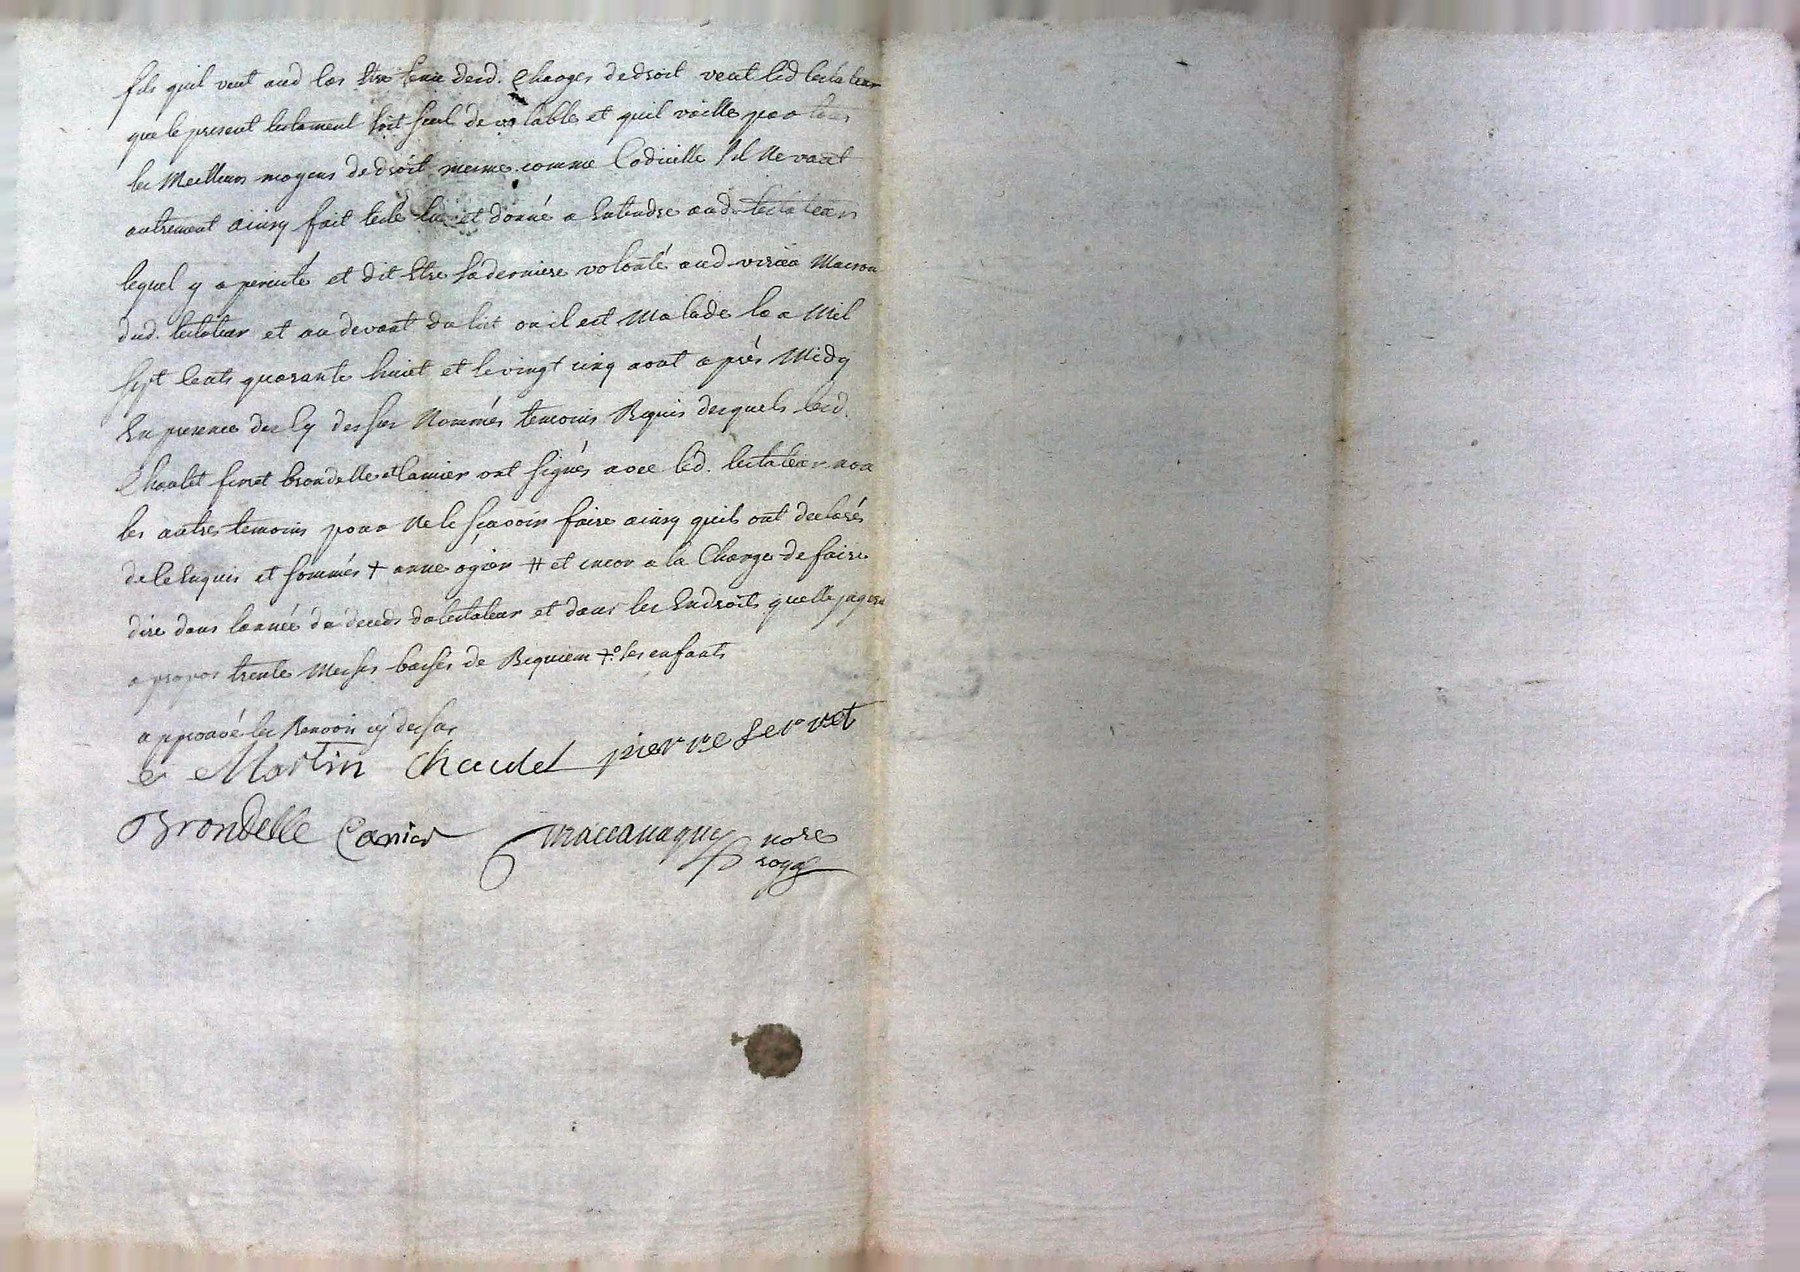 fils quil veut aud cas Etre tenu desd. Charges de droit veut led testateur
que le present testament soit seul de valable et quil vaille par tous
les Meilleurs moyens de droit mesme comme Codicille Sil Ne vaut
autrement ainsy fait testé lu et donné a Entendre aud testateur
lequel y a percisté et dit Etre sa derniere volonté aud Maison
dud. testateur et au devant du lit ou il est Malade la Mil
sept cents quarante huict et le vingt cinq aout après Midy
En presence des Cy dessus Nommés temoins Requis desquels led.
Chaulet brondelle et Camier ont signés avec led. testateur non
les autres temoins pour Ne le sçavoir faire ainsy quils ont declarés
de ce Enquis et sommés + anne ogier # et encor a la Charge de faire
dire dans lannée du deceds du testateur et dans les Endroits quelle jugera
a propos trente Messes basses de Requiem +° ses enfants
approuvé les Renvois cy dessus
Martin Chaulet pierre
Brondelle Camier nore